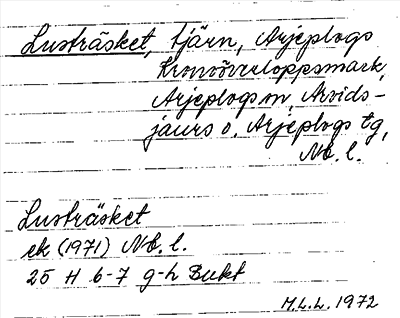 Lusträsket, tjärn, Arjeplogs
kronoöverloppsmark,
Arjeplogs sn, Arvids-
jaurs o. Arjeplogs tg,
Nb. l.
Lusträsket
ek (1971) Nb. l.
25 H 6-7 g-h Bukt
M.L.L. 1972